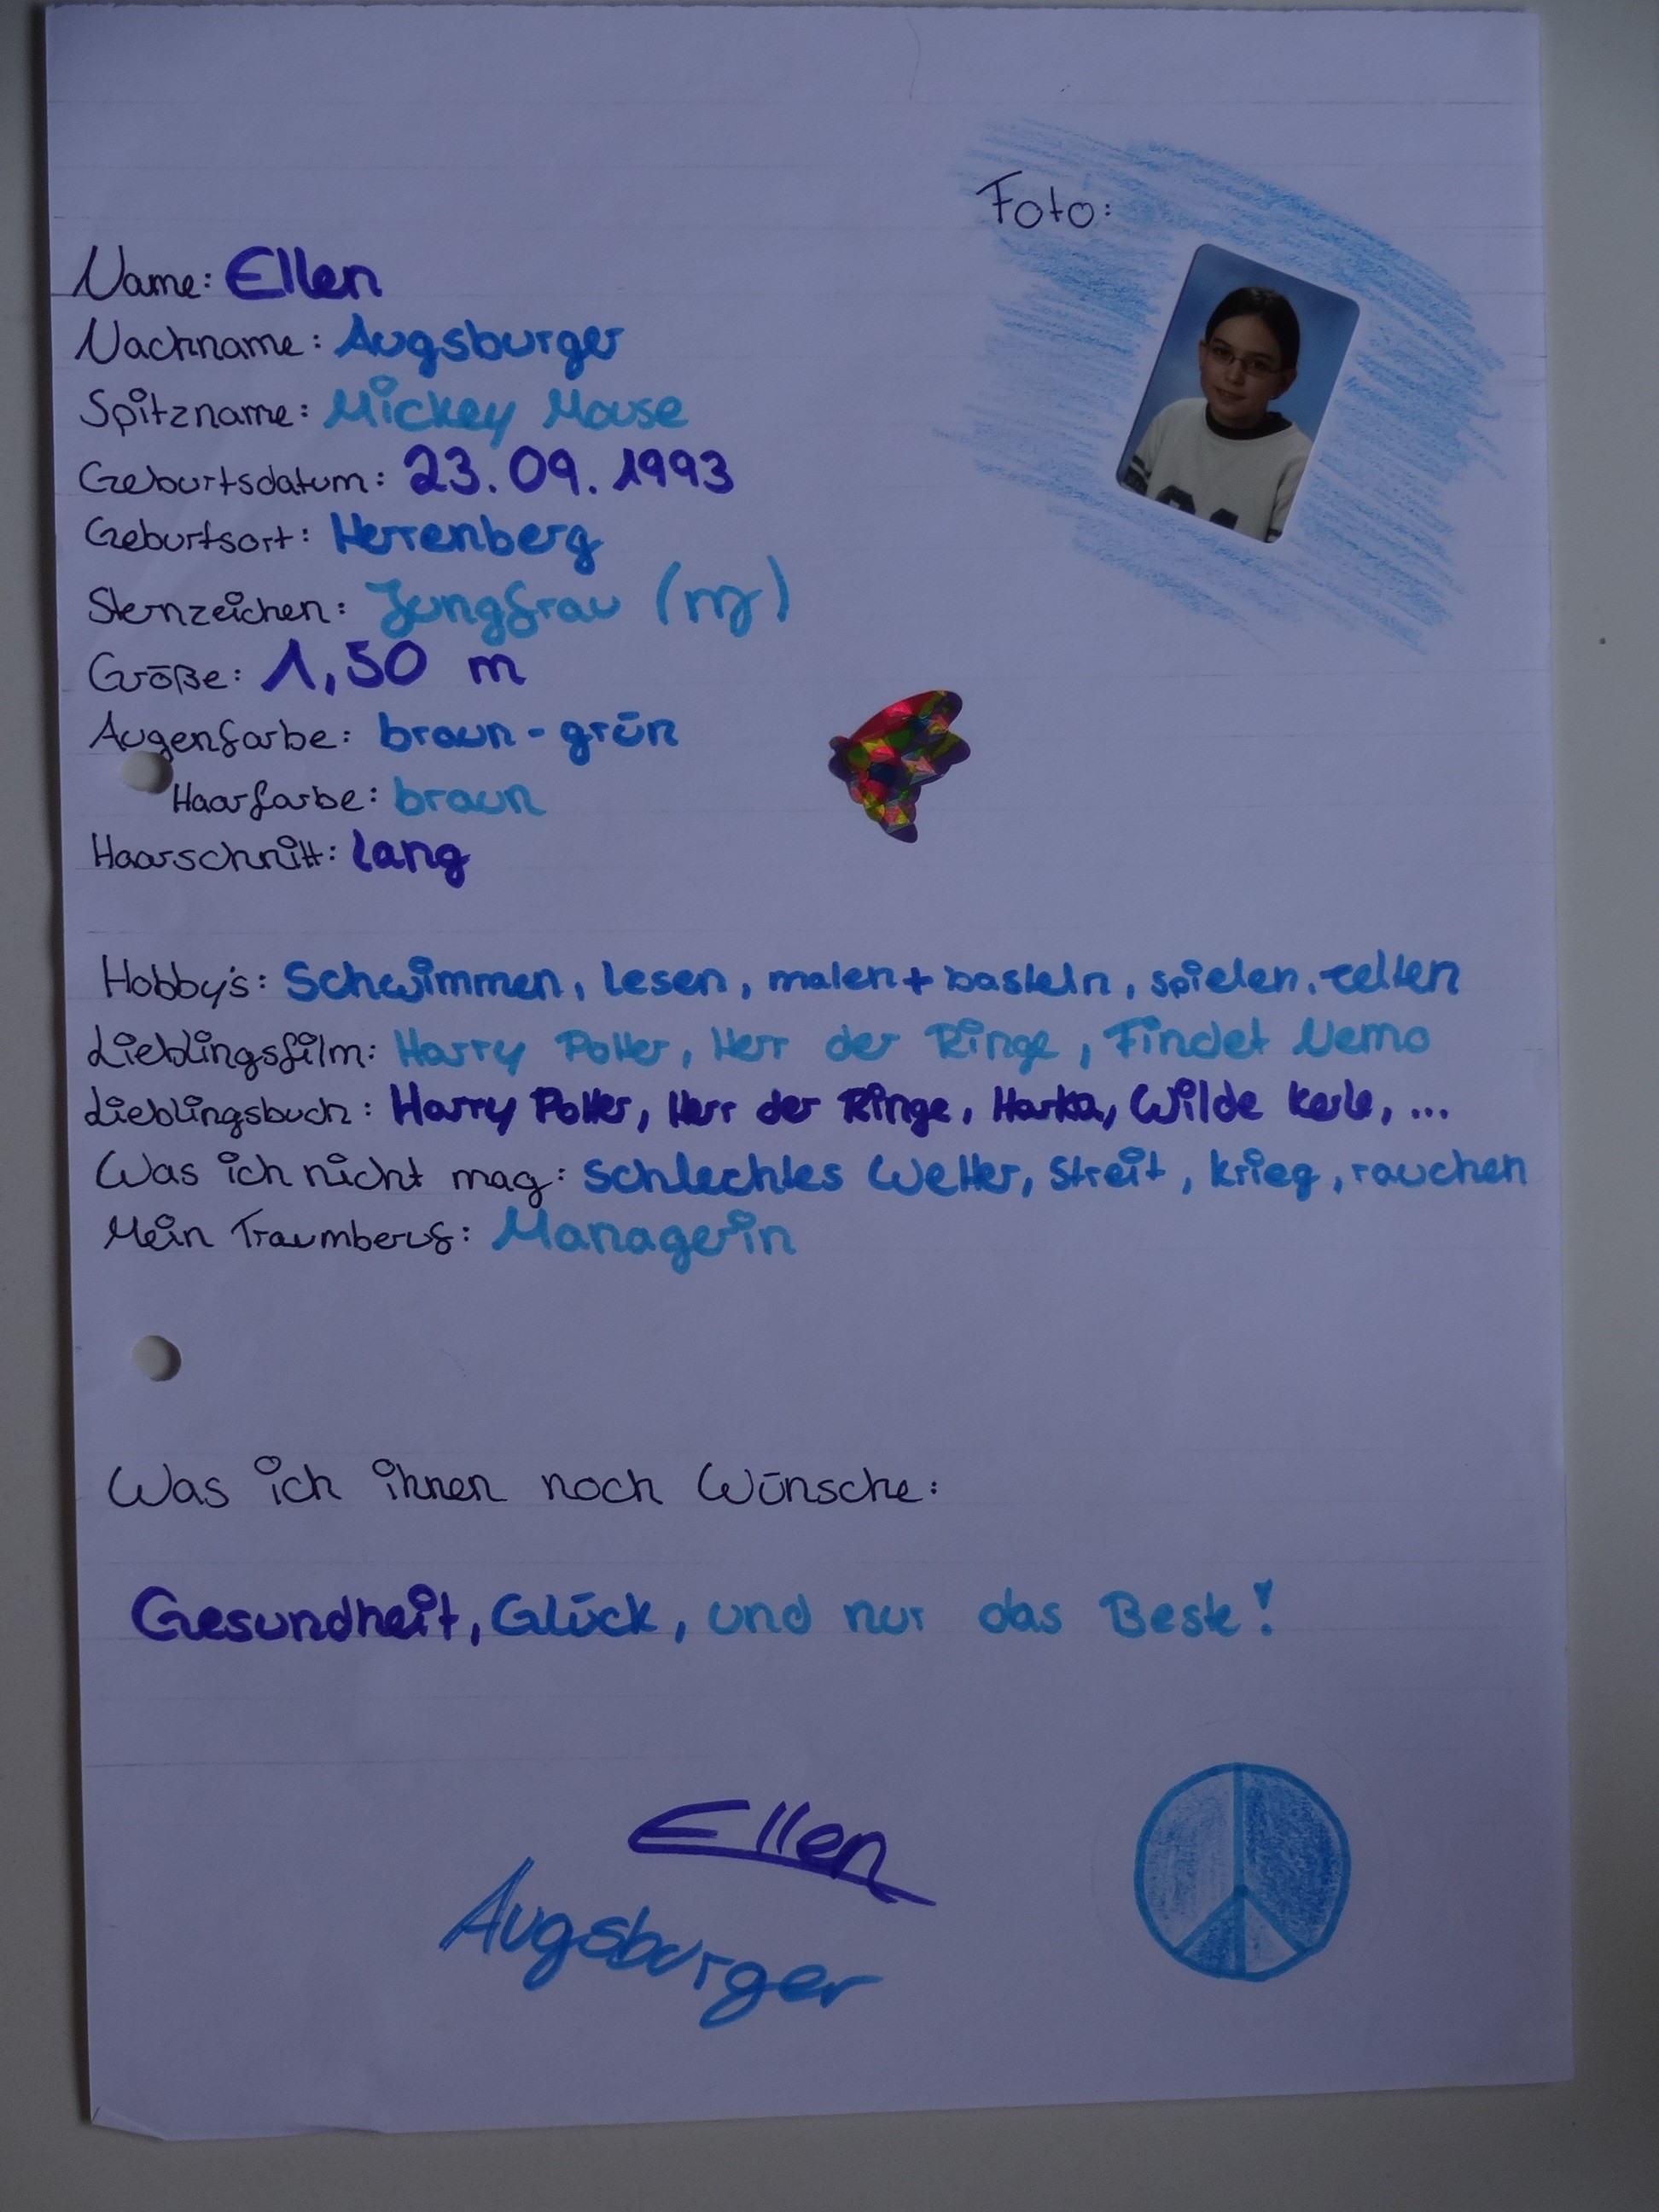 Foto:
Name: Ellen
Nachname: Augsburger
Spitzname: Mickey Mouse
Geburtsdatum: 23.09.1993
Geburtsort: Herrenberg
Sternzeichen: Jungfrau (♍)
Größe: 1,50 m
Augenfarbe: braun-grün
Haarfarbe: braun
Haarschnitt: lang
Hobby's: Schwimmen, lesen, malen + basteln, spielen, reiten
Lieblingsfilm: Harry Potter, Herr der Ringe, Findet Nemo
Lieblingsbuch: Harry Potter, Herr der Ringe, Harka, Wilde Kerle, ...
Was ich nicht mag: Schlechtes Wetter, Streit, Krieg, rauchen
Mein Traumberuf: Managerin
Was ich ihnen noch Wünsche:
Gesundheit, Glück, und nur das Beste!
Ellen
Augsburger